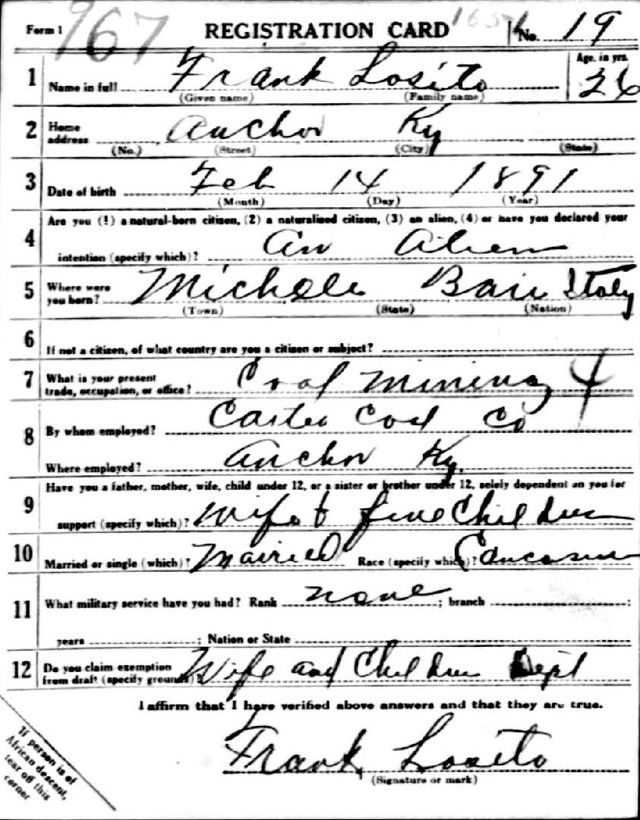 Form 1 967 REGISTRATION CARD No. 19
1 Name in full Frank Losito Age, in yrs. 26
(Given name) (Family name)
2 Home address Anchor Ky
(No.) (Street) (City) (State)
3 Date of birth Feb 14 1891
(Month) (Day) (Year)
4 Are you (1) a natural-born citizen, (2) a naturalized citizen, (3) an alien, (4) or have you declared your
intention (specify which)? An Alien
5 Where were you born? Michele Bari Italy
(Town) (State) (Nation)
6 If not a citizen, of what country are you a citizen or subject?
7 What is your present trade, occupation, or office? Coal Mining 4
8 By whom employed? Carter Coal Co
Where employed? Anchor Ky.
9 Have you a father, mother, wife, child under 12, or a sister or brother under 12, solely dependent on you for
support (specify which)? Wife & five Children
10 Married or single (which)? Married Race (specify which)? Caucasian
11 What military service have you had? Rank none ; branch ;
years ; Nation or State
12 Do you claim exemption from draft (specify grounds)? Wife and Children Dept
I affirm that I have verified above answers and that they are true.
Frank Losito
(Signature or mark)
If person is of
African descent,
tear off this
corner